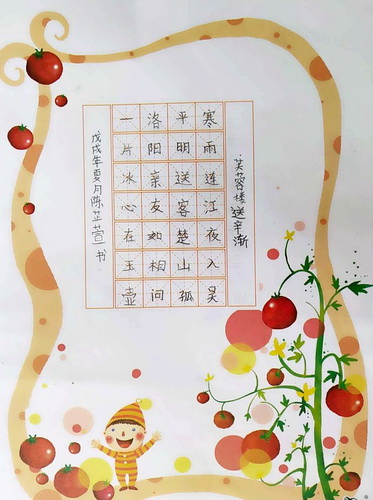 芙蓉楼送辛渐
寒雨连江夜入吴
平明送客楚山孤
洛阳亲友如相问
一片冰心在玉壶
戊戌年夏月陈芷萱书